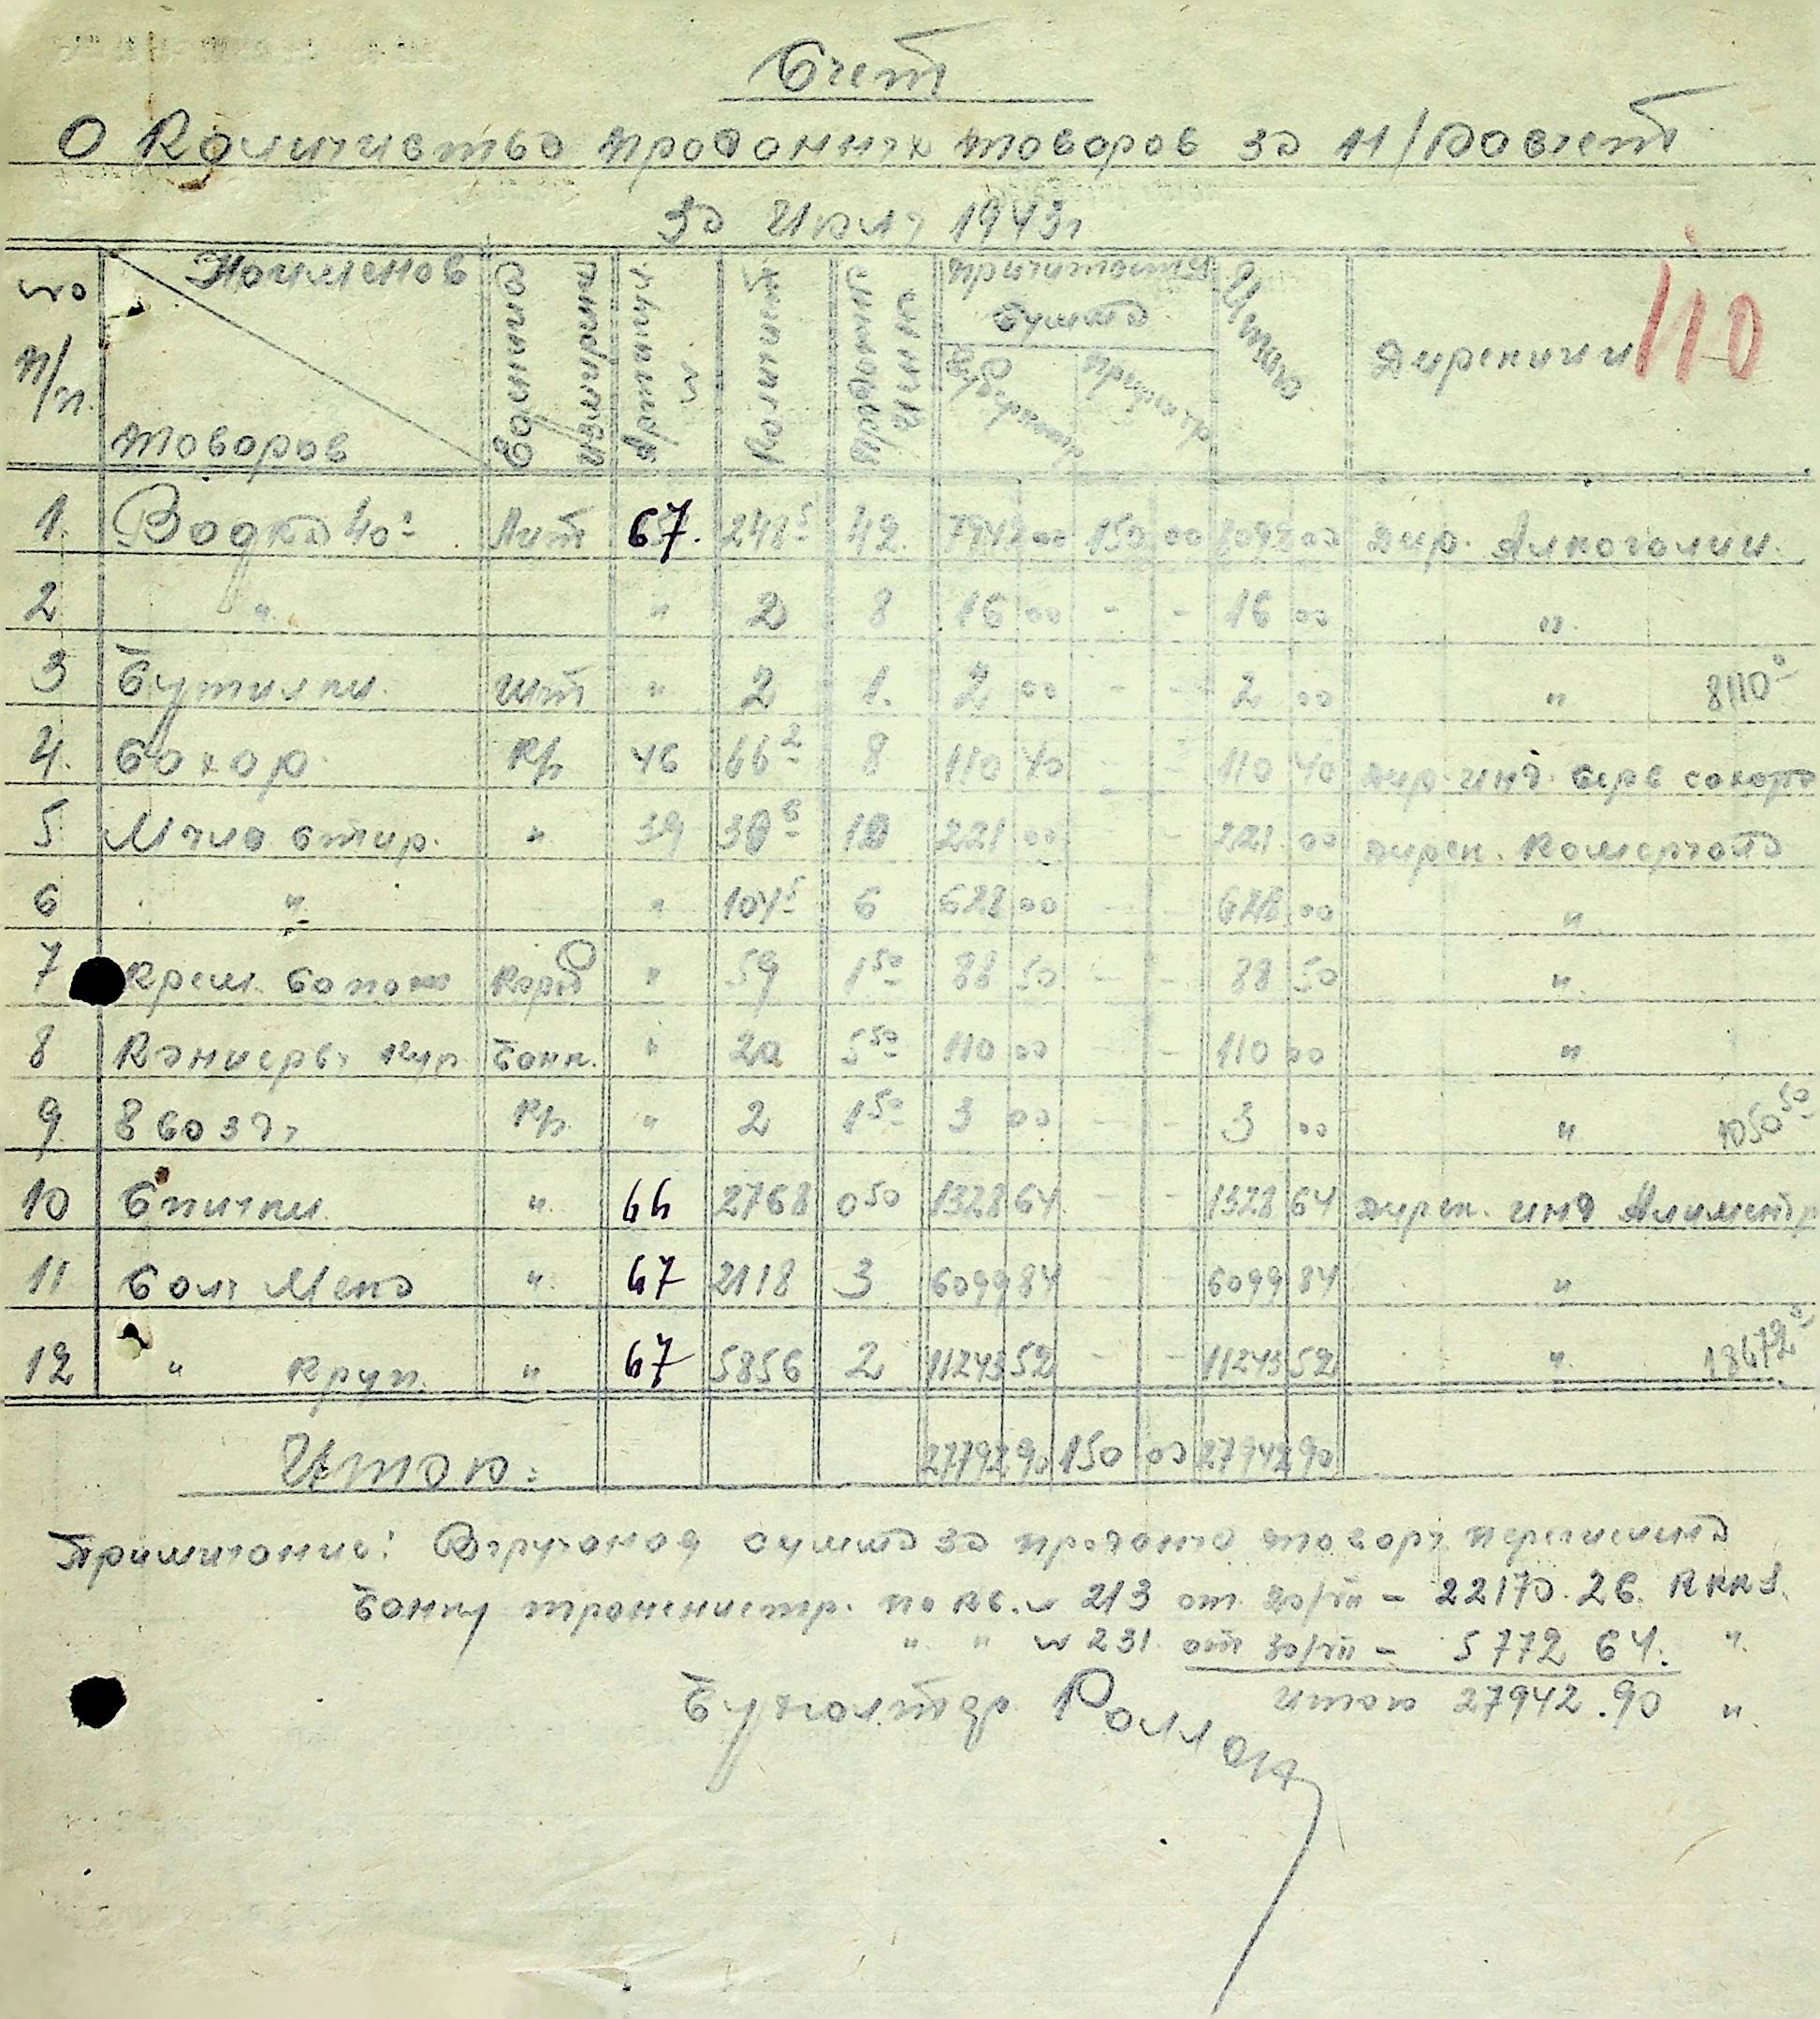 Счет
О Количиства проданных товоров за н/Расчет
За Июль 1943г
110
№ п/п. Наименов товоров Единица Артикул № Количест цина Причитающ Сумма Итого Дирекции
1. Водка 40° Лит 67. 248 5 42 7942 00 150 00 8092 00 Дир. Алкоголии.
2 " " 2 8 16 00 - - 16 00 "
3 Бутилки. шт " 2 1. 2 00 - - 2 00 " 8110 °
4. Сахор. Кр 46 66 2 8 110 40 - - 110 40 дир. инд. сахора
5 Мыло стир. " 39 10 221 00 - 221 00 дирек. Комерчата
6 " " 104 5 6 628 00 - - 628 00 "
7 Крем. сапож Короб " 59 1 50 88 50 - - 88 50 "
8 Консервы Банк. " 20 5 50 110 00 - 110 00 "
9. Гвозди Кр. " 2 1 50 3 00 - - 3 00 " 1050 50
10 Спички. " 66 2768 0 50 1328 64 - - 1328 64 дирек. инд Алиментр
11 Соль Мелко " 67 2118 3 6099 84 - - 6099 84 "
12 " Круп. " 67 5856 2 11243 52 - - 11243 52 " 18672 °
Итого: 27792 90 150 00 27942 90
Примичание: Вырученая сумма за проданые товоры перечислина
Банку транснистр. по кв. № 213 от 20/VII - 22170.26. RKKS.
" " № 231. от 30/VII - 5772 64. "
Бухгалтер Итого 27942.90 "